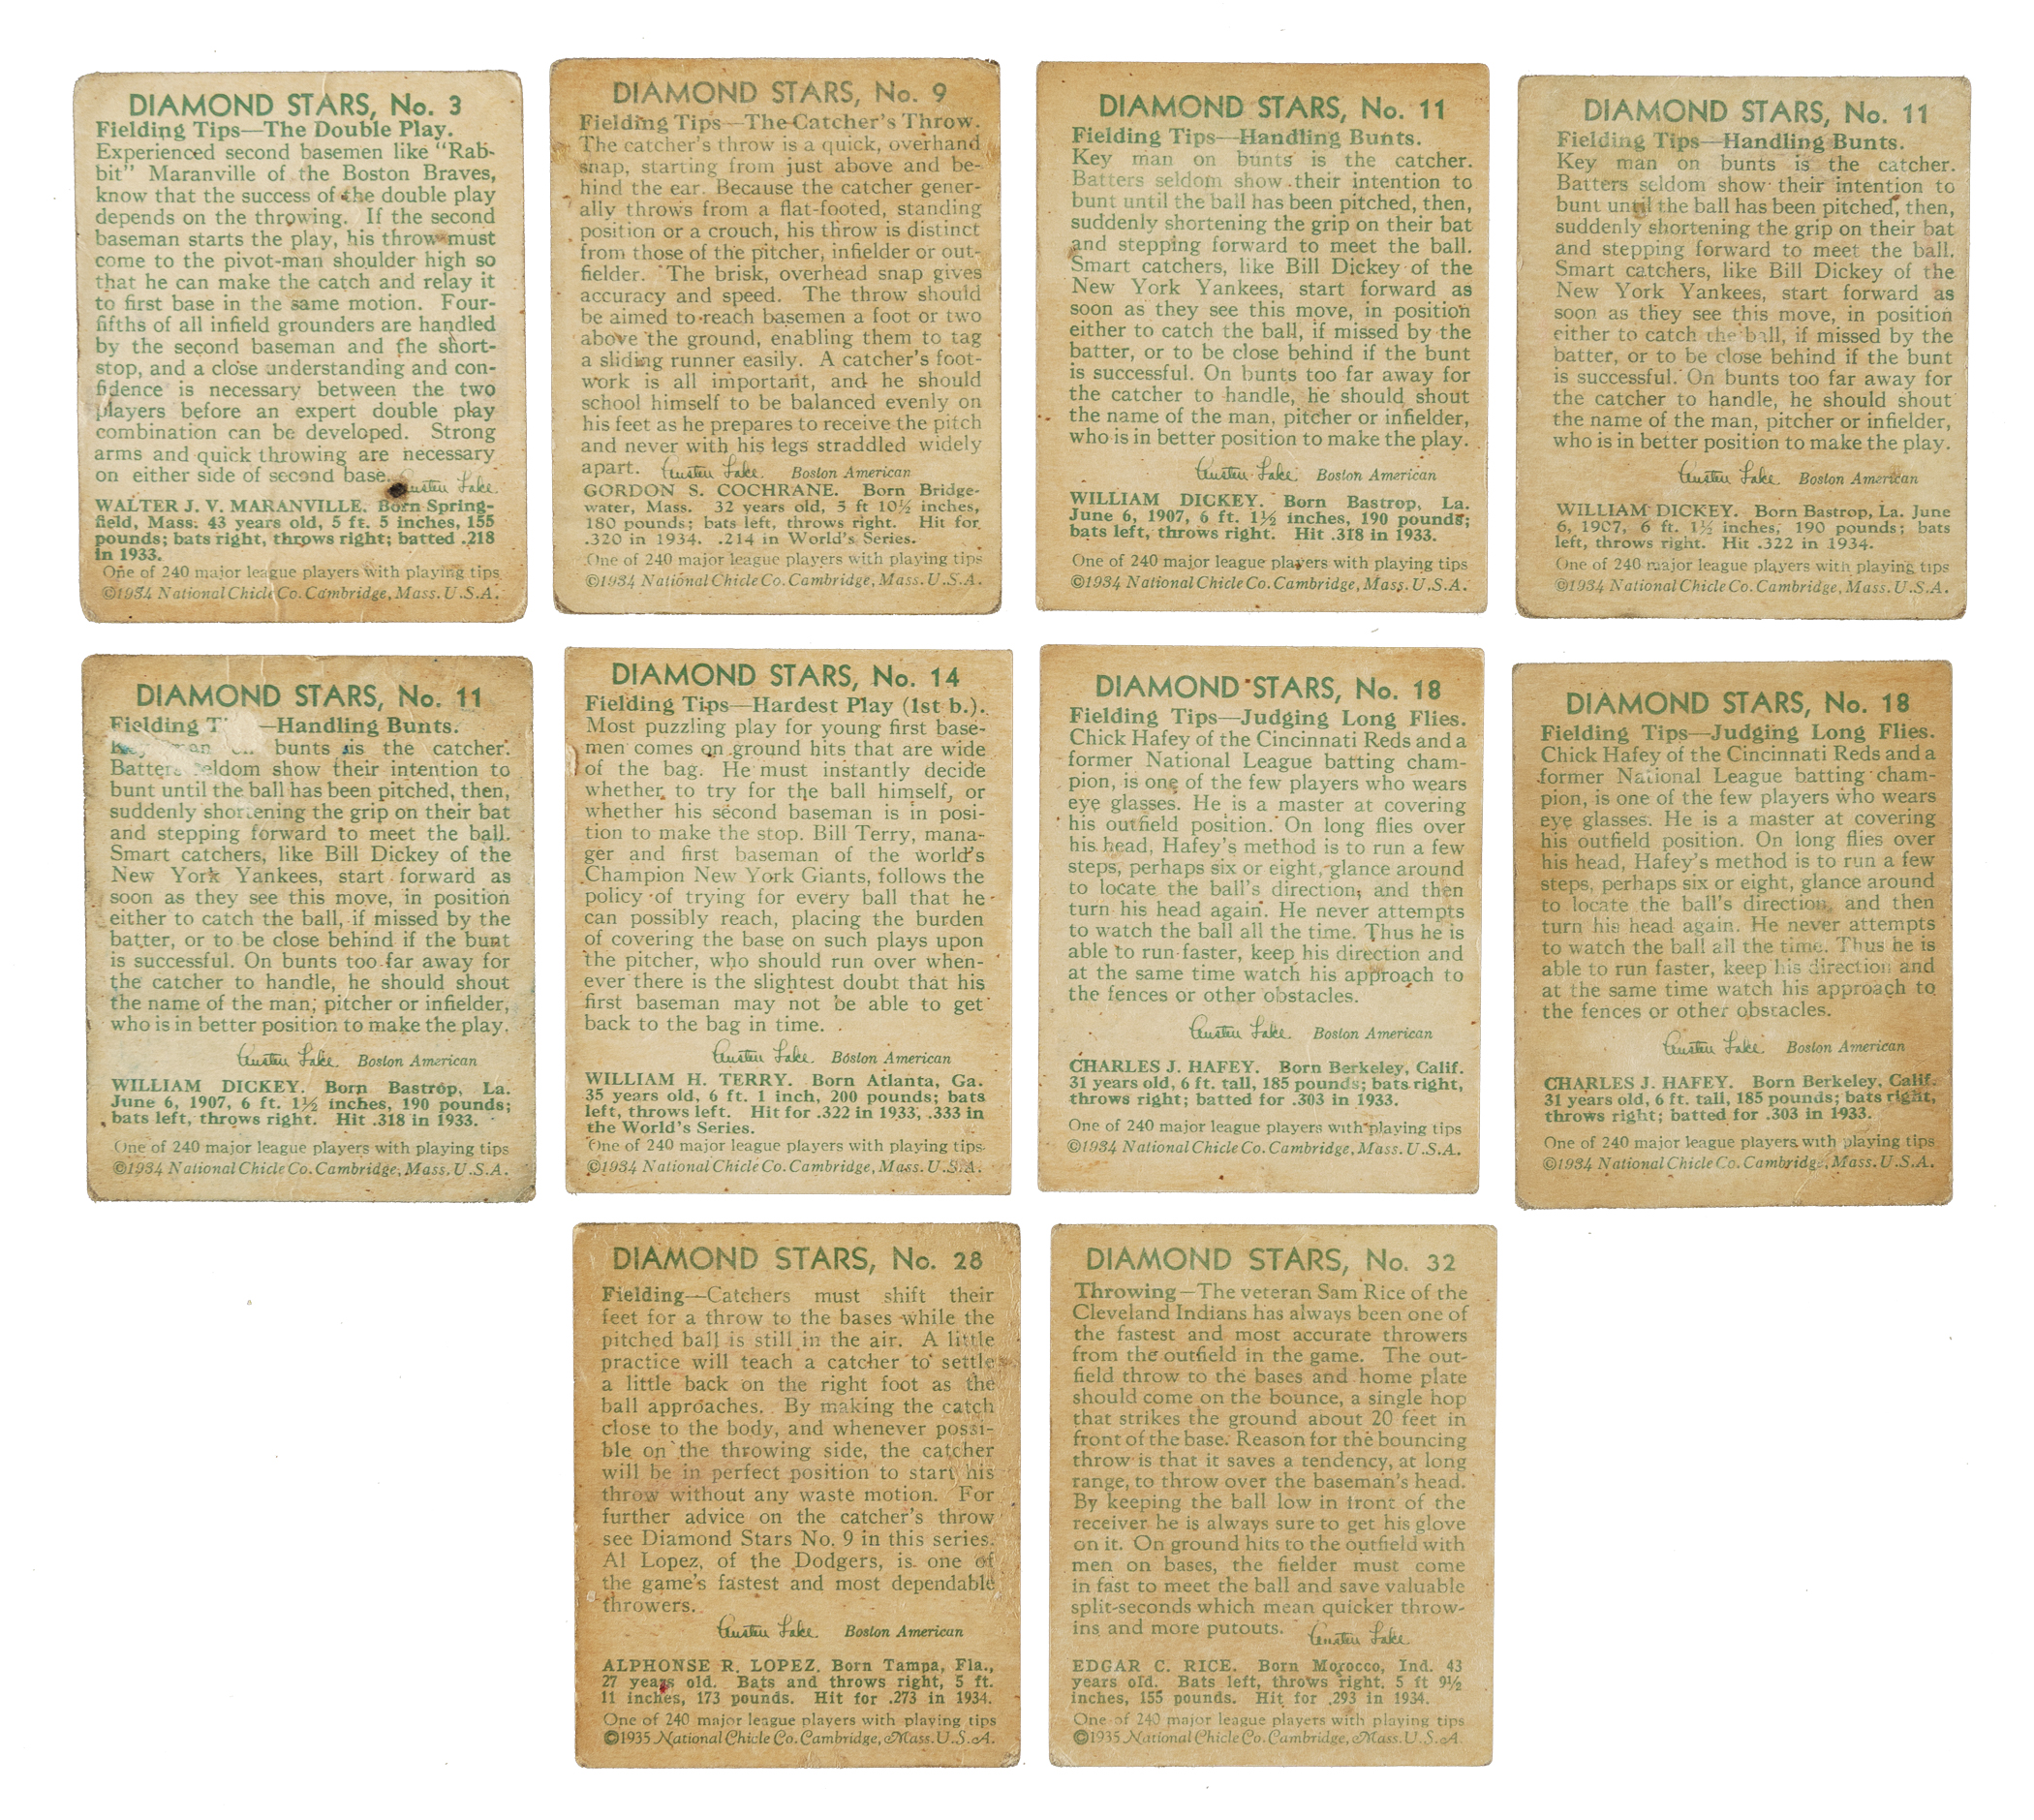 DIAMOND STARS, No. 3
Fielding Tips—The Double Play.
Experienced second basemen like "Rab-
bit" Maranville of the Boston Braves,
know that the success of the double play
depends on the throwing. If the second
baseman starts the play, his throw must
come to the pivot-man shoulder high so
that he can make the catch and relay it
to first base in the same motion. Four-
fifths of all infield grounders are handled
by the second baseman and the short-
stop, and a close understanding and con-
fidence is necessary between the two
players before an expert double play
combination can be developed. Strong
arms and quick throwing are necessary
on either side of second base.
Austen Lake.
WALTER J. V. MARANVILLE. Born Spring-
field, Mass. 43 years old, 5 ft. 5 inches, 155
pounds; bats right, throws right; batted .218
in 1933.
One of 240 major league players with playing tips
©1934 National Chicle Co. Cambridge, Mass. U.S.A.
DIAMOND STARS, No. 9
Fielding Tips—The Catcher's Throw.
The catcher's throw is a quick, overhand
snap, starting from just above and be-
hind the ear. Because the catcher gener-
ally throws from a flat-footed, standing
position or a crouch, his throw is distinct
from those of the pitcher, infielder or out-
fielder. The brisk, overhead snap gives
accuracy and speed. The throw should
be aimed to reach basemen a foot or two
above the ground, enabling them to tag
a sliding runner easily. A catcher's foot-
work is all important, and he should
school himself to be balanced evenly on
his feet as he prepares to receive the pitch
and never with his legs straddled widely
apart. Austen Lake. Boston American
GORDON S. COCHRANE. Born Bridge-
water, Mass. 32 years old, 5 ft 10½ inches,
180 pounds; bats left, throws right. Hit for
.320 in 1934. .214 in World's Series.
One of 240 major league players with playing tips
©1934 National Chicle Co. Cambridge, Mass. U.S.A.
DIAMOND STARS, No. 11
Fielding Tips—Handling Bunts.
Key man on bunts is the catcher.
Batters seldom show their intention to
bunt until the ball has been pitched, then,
suddenly shortening the grip on their bat
and stepping forward to meet the ball.
Smart catchers, like Bill Dickey of the
New York Yankees, start forward as
soon as they see this move, in position
either to catch the ball, if missed by the
batter, or to be close behind if the bunt
is successful. On bunts too far away for
the catcher to handle, he should shout
the name of the man, pitcher or infielder,
who is in better position to make the play.
Austen Lake. Boston American
WILLIAM DICKEY. Born Bastrop, La.
June 6, 1907, 6 ft. 1½ inches, 190 pounds;
bats left, throws right. Hit .318 in 1933.
One of 240 major league players with playing tips
©1934 National Chicle Co. Cambridge, Mass. U.S.A.
DIAMOND STARS, No. 11
Fielding Tips—Handling Bunts.
Key man on bunts is the catcher.
Batters seldom show their intention to
bunt until the ball has been pitched, then,
suddenly shortening the grip on their bat
and stepping forward to meet the ball.
Smart catchers, like Bill Dickey of the
New York Yankees, start forward as
soon as they see this move, in position
either to catch the ball, if missed by the
batter, or to be close behind if the bunt
is successful. On bunts too far away for
the catcher to handle, he should shout
the name of the man, pitcher or infielder,
who is in better position to make the play.
Austen Lake. Boston American
WILLIAM DICKEY. Born Bastrop, La. June
6, 1907, 6 ft. 1½ inches, 190 pounds; bats
left, throws right. Hit .322 in 1934.
One of 240 major league players with playing tips
©1934 National Chicle Co. Cambridge, Mass. U.S.A.
DIAMOND STARS, No. 11
Fielding —Handling Bunts.
bunts is the catcher.
Batters seldom show their intention to
bunt until the ball has been pitched, then,
suddenly shortening the grip on their bat
and stepping forward to meet the ball.
Smart catchers, like Bill Dickey of the
New York Yankees, start forward as
soon as they see this move, in position
either to catch the ball, if missed by the
batter, or to be close behind if the bunt
is successful. On bunts too far away for
the catcher to handle, he should shout
the name of the man, pitcher or infielder,
who is in better position to make the play.
Austen Lake. Boston American
WILLIAM DICKEY. Born Bastrop, La.
June 6, 1907, 6 ft. 1½ inches, 190 pounds;
bats left, throws right. Hit .318 in 1933.
One of 240 major league players with playing tips
©1934 National Chicle Co. Cambridge, Mass. U.S.A.
DIAMOND STARS, No. 14
Fielding Tips—Hardest Play (1st b.).
Most puzzling play for young first base-
men comes on ground hits that are wide
of the bag. He must instantly decide
whether to try for the ball himself, or
whether his second baseman is in posi-
tion to make the stop. Bill Terry, mana-
ger and first baseman of the world's
Champion New York Giants, follows the
policy of trying for every ball that he
can possibly reach, placing the burden
of covering the base on such plays upon
the pitcher, who should run over when-
ever there is the slightest doubt that his
first baseman may not be able to get
back to the bag in time.
Austen Lake. Boston American
WILLIAM H. TERRY. Born Atlanta, Ga.
35 years old, 6 ft. 1 inch, 200 pounds; bats
left, throws left. Hit for .322 in 1933, .333 in
the World's Series.
One of 240 major league players with playing tips
©1934 National Chicle Co. Cambridge, Mass. U.S.A.
DIAMOND STARS, No. 18
Fielding Tips—Judging Long Flies.
Chick Hafey of the Cincinnati Reds and a
former National League batting cham-
pion, is one of the few players who wears
eye glasses. He is a master at covering
his outfield position. On long flies over
his head, Hafey's method is to run a few
steps, perhaps six or eight, glance around
to locate the ball's direction, and then
turn his head again. He never attempts
to watch the ball all the time. Thus he is
able to run faster, keep his direction and
at the same time watch his approach to
the fences or other obstacles.
Austen Lake. Boston American
CHARLES J. HAFEY. Born Berkeley, Calif.
31 years old, 6 ft. tall, 185 pounds; bats right,
throws right; batted for .303 in 1933.
One of 240 major league players with playing tips
©1934 National Chicle Co. Cambridge, Mass. U.S.A.
DIAMOND STARS, No. 18
Fielding Tips—Judging Long Flies.
Chick Hafey of the Cincinnati Reds and a
former National League batting cham-
pion, is one of the few players who wears
eye glasses. He is a master at covering
his outfield position. On long flies over
his head, Hafey's method is to run a few
steps, perhaps six or eight, glance around
to locate the ball's direction, and then
turn his head again. He never attempts
to watch the ball all the time. Thus he is
able to run faster, keep his direction and
at the same time watch his approach to
the fences or other obstacles.
Austen Lake. Boston American
CHARLES J. HAFEY. Born Berkeley, Calif.
31 years old, 6 ft. tall, 185 pounds; bats right,
throws right; batted for .303 in 1933.
One of 240 major league players with playing tips
©1934 National Chicle Co. Cambridge, Mass. U.S.A.
DIAMOND STARS, No. 28
Fielding—Catchers must shift their
feet for a throw to the bases while the
pitched ball is still in the air. A little
practice will teach a catcher to settle
a little back on the right foot as the
ball approaches. By making the catch
close to the body, and whenever possi-
ble on the throwing side, the catcher
will be in perfect position to start his
throw without any waste motion. For
further advice on the catcher's throw
see Diamond Stars No. 9 in this series.
Al Lopez, of the Dodgers, is one of
the game's fastest and most dependable
throwers.
Austen Lake. Boston American
ALPHONSE R. LOPEZ. Born Tampa, Fla.,
27 years old. Bats and throws right, 5 ft.
11 inches, 173 pounds. Hit for .273 in 1934.
One of 240 major league players with playing tips
©1935 National Chicle Co. Cambridge, Mass. U.S.A.
DIAMOND STARS, No. 32
Throwing—The veteran Sam Rice of the
Cleveland Indians has always been one of
the fastest and most accurate throwers
from the outfield in the game. The out-
field throw to the bases and home plate
should come on the bounce, a single hop
that strikes the ground about 20 feet in
front of the base. Reason for the bouncing
throw is that it saves a tendency, at long
range, to throw over the baseman's head.
By keeping the ball low in front of the
receiver he is always sure to get his glove
on it. On ground hits to the outfield with
men on bases, the fielder must come
in fast to meet the ball and save valuable
split-seconds which mean quicker throw-
ins and more putouts. Austen Lake.
EDGAR C. RICE. Born Morocco, Ind. 43
years old. Bats left, throws right. 5 ft 9½
inches, 155 pounds. Hit for .293 in 1934.
One of 240 major league players with playing tips
©1935 National Chicle Co. Cambridge, Mass. U.S.A.